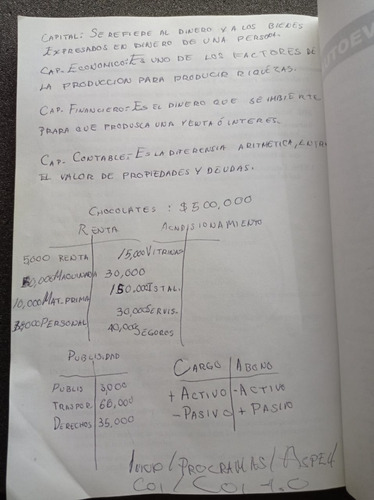 CAPITAL: SE REFIERE AL DINERO Y A LOS BIENES
EXPRESADOS EN DINERO DE UNA PERSON.
CAP. ECONOMICO: ES UNO DE LOS FACTORES DE
LA PRODUCCION PARA PRODUCIR RIQUEZAS.
CAP. FINANCIERO: ES EL DINERO QUE SE IMBIERTE
PRARA QUE PRODUSCA UNA RENTA Ó INTERES.
CAP. CONTABLE: ES LA DIFERENSIA ARITMETICA, ENTR
EL VALOR DE PROPIEDADES Y DEUDAS.
CHOCOLATES : $500,000
RENTA ACNDISIONAMIENTO
5000 RENTA 15,000 VITRINAS
30,000
10,000 MAT. PRIMA
PERSONAL 30,000 SERVIS.
40,000 SEGOROS
PUBLISIDAD
PUBLIS 3,000
TRASPOR. 60,000
DERECHOS 35,000
CARGO ABONO
+ ACTIVO - ACTIVO
- PASIVO + PASIVO
INICIO / PROGRAMAS / ASPEL
COI / COI